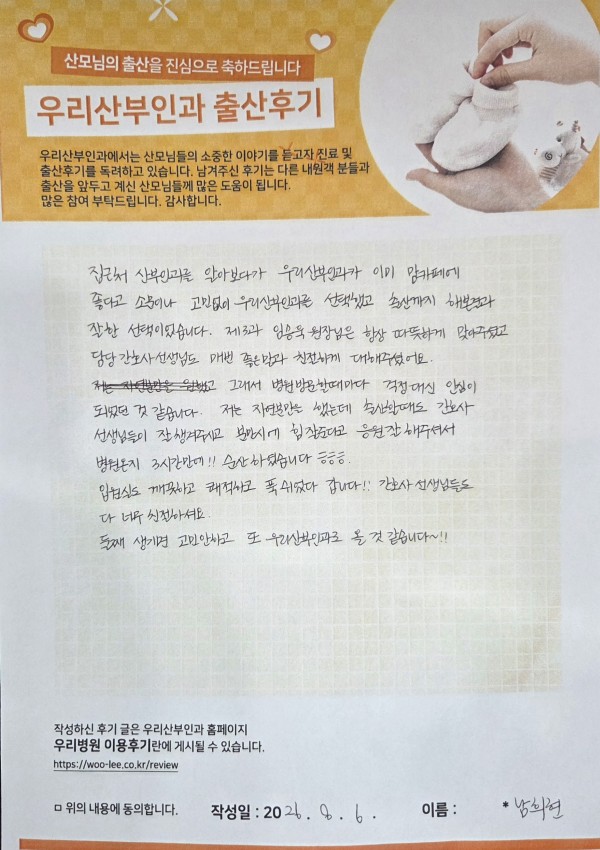 산모님의 출산을 진심으로 축하드립니다
우리산부인과 출산후기
우리산부인과에서는 산모님들의 소중한 이야기를 듣고자 진료 및
출산후기를 독려하고 있습니다. 남겨주신 후기는 다른 내원객 분들과
출산을 앞두고 계신 산모님들께 많은 도움이 됩니다.
많은 참여 부탁드립니다. 감사합니다.
집근처 산부인과를 알아보다가 우리산부인과가 이미 맘카페에
좋다고 소문이나 고민없이 우리산부인과를 선택했고 출산까지 해본결과
잘한 선택이었습니다. 제3과 임승욱 원장님은 항상 따뜻하게 맞아주셨고
담당 간호사선생님도 매번 친절하게 대해주셨어요.
저는 자연분만을 원했고 그래서 병원방문할때마다 걱정대신 안심이
되었던 것 같습니다. 저는 자연분만을 했는데 출산할때도 간호사
선생님들이 잘 챙겨주시고 분만시에 힘 잘준다고 응원 잘 해주셔서
병원온지 3시간만에!! 순산하였습니다 ㅎㅎㅎ.
입원실도 깨끗하고 쾌적하고 푹 쉬었다 갑니다!! 간호사 선생님들도
다 너무 친절하셔요.
둘째 생기면 고민안하고 또 우리산부인과로 올 것 같습니다~!!
작성하신 후기 글은 우리산부인과 홈페이지
우리병원 이용후기란에 게시될 수 있습니다.
https://woo-lee.co.kr/review
ㅁ 위의 내용에 동의합니다. 작성일 : 2026. 8. 6. 이름 : * 남희현